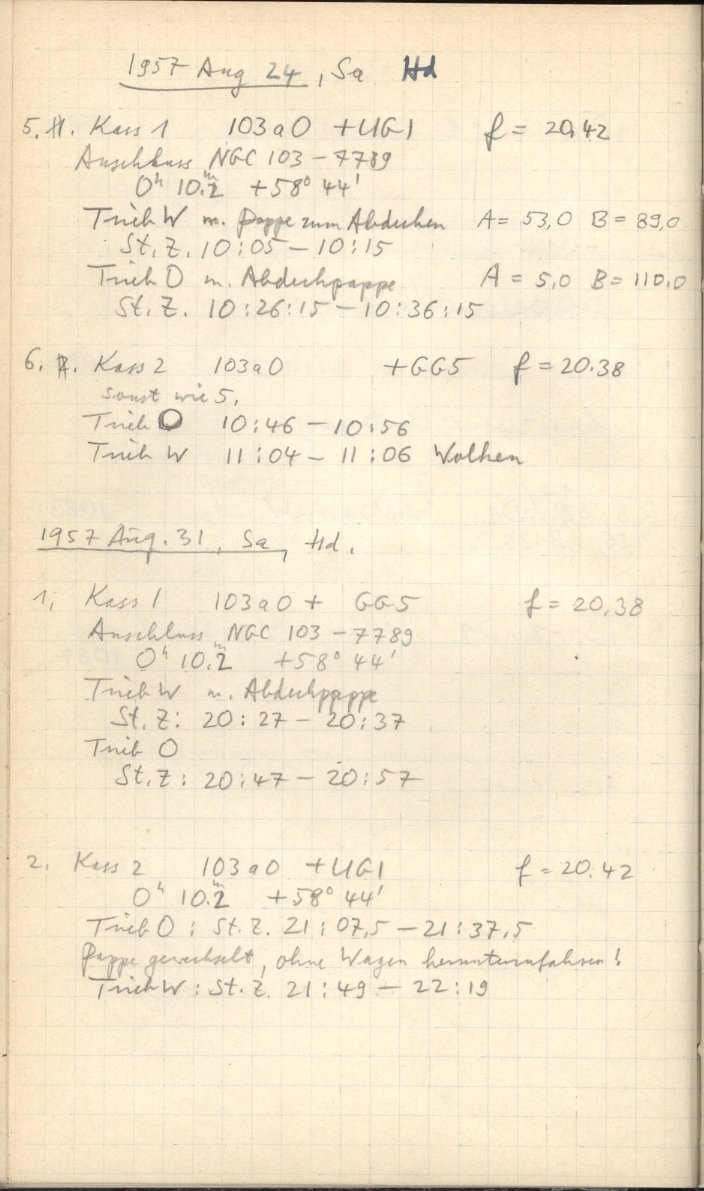 1957 Aug 24, Sa Hd
5. Kass 1 103a0 +UG1 f = 20,42
Anschluss NGC 103 – 7789
0ʰ 10.ᵐ2 +58° 44'
Trieb W m. Pappe zum Abdecken A = 53,0 B = 89,0
St. Z. 10:05 – 10:15
Trieb O m. Abdeckpappe A = 5,0 B = 110,0
St. Z. 10:26:15 – 10:36:15
6. Kass 2 103a0 +GG5 f = 20.38
sonst wie 5.
Trieb O 10:46 – 10:56
Trieb W 11:04 – 11:06 Wolken
1957 Aug. 31, Sa, Hd.
1, Kass 1 103a0 + GG5 f = 20,38
Anschluss NGC 103 – 7789
0ʰ 10.ᵐ2 +58° 44'
Trieb W m. Abdeckpappe
St. Z: 20:27 – 20:37
Trieb O
St. Z: 20:47 – 20:57
2. Kass 2 103a0 +UG1 f = 20.42
0ʰ 10.ᵐ2 +58° 44'
Trieb O : St. Z. 21:07,5 – 21:37,5
Pappe gewechselt, ohne Wagen herunterzufahren!
Trieb W : St. Z. 21:49 – 22:19